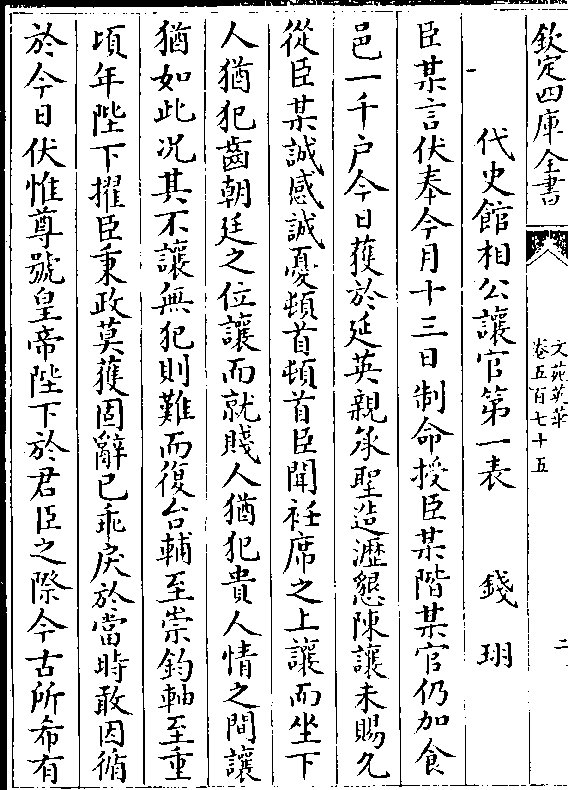 欽定四庫全書
文苑英華
卷五百七十五
二
代史館相公讓官第一表 錢珝
臣某言伏奉今月十三日制命授臣某階某官仍加食
邑一千户今日獲於延英親承聖造瀝懇陳讓未賜允
從臣某誠感誠憂頓首頓首臣聞袵席之上讓而坐下
人猶犯齒朝廷之位讓而就賤人猶犯貴人情之間讓
猶如此况其不讓無犯則難而復台輔至崇鈞軸至重
頃年陛下擢臣秉政莫獲固辭已乖戾於當時敢因循
於今日伏惟尊號皇帝陛下於君臣之際今古所希有